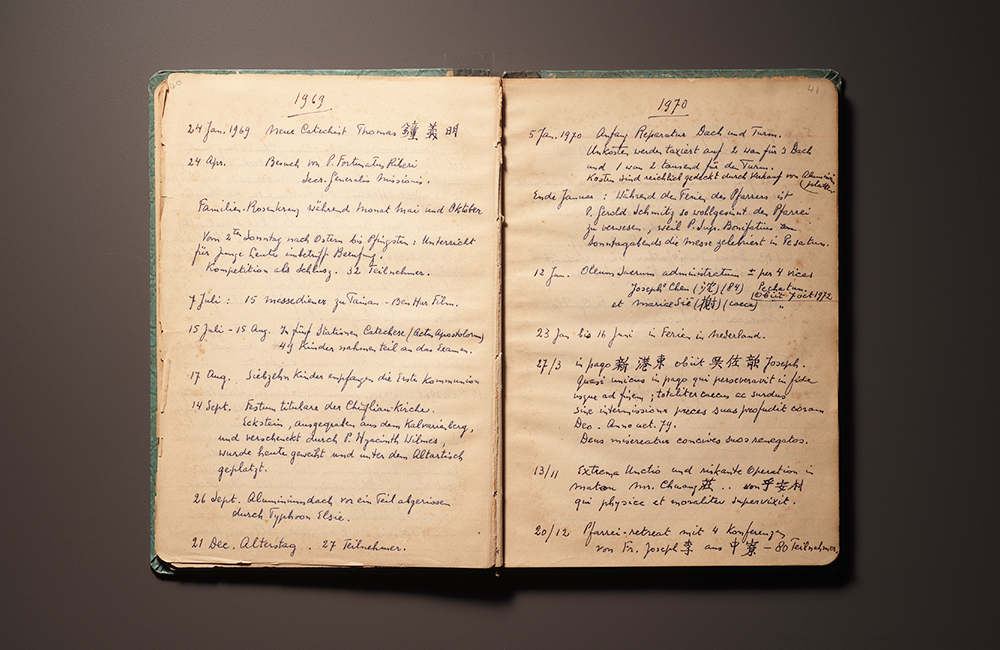 40
1969
24 Jan. 1969 Neue Catechist Thomas 鐘義明
24 Apr. Besuch von P. Fortunatus Riberi
Secr. Generalis Missionis.
Familien-Rosenkranz während Monat Mai und Oktober
Vom 2ten Sonntag nach Ostern bis Pfingsten: Unterricht
für junge Leute inbetriff Berufung.
Kompetition als Schlusz. 32 Teilnehmer.
7 Juli: 15 Messediener zu Tainan - Ben Hur Film.
15 Juli - 15 Aug. In fünf Stationen Catechese (Actus Apostolorum)
49 Kinder nahmen teil an das Examen.
17 Aug. Siebzehn Kinder empfangen die Erste Kommunion
14 Sept. Festum titulare der Kirche.
Eckstein, ausgegraben aus dem Kalvarienberg,
und verschenckt durch P. Hyacinth Wilmes,
wurde heute geweiht und unter dem Altartisch
geplatzt.
26 Sept. Aluminiumdach vor ein Teil abgerissen
durch Typhoon Elsie.
21 Dec. Alterstag. 27 Teilnehmer.
41
1970
5 Jan. 1970 Anfang Reparatur Dach und Turm.
Unkosten werden taxiert auf 2 wan für's Dach
und 1 wan 2 tausend für den Turm.
Kosten sind reichlich gedeckt durch Verkauf von Aluminium
platten
Ende Januar: Während die Ferien des Pfarrers ist
P. Gerold Schmitz so wollgesinnt der Pfarrei
zu verwesen, weil P. Bonifatius
Sonntagabends die Messe zelebriert in Pesatum.
12 Jan. Oleum Sacrum administratum ± per 4 vices
Joseph Chen (沈) (84) Pechatum.
obiit 7 oct 1972
et Maria Sié (謝) (caeca) "
23 Jan bis 16 Juni in Ferien in Nederland.
27/3 in pago 新港東 obiit 吳佐韻 Joseph.
Quasi unicus in pago qui perseveravit in fide
usque ad finem; totaliter caecus ac surdus
sine intermissione preces suas profudit coram
Deo. Anno aet. 79.
Deus misereatur concives suos renegatos.
13/11 Extrema Unctio und riskante Operation in
Matou Mr. Chuang 莊 .. von 平安村
qui physice et moraliter supervixit.
20/12 Pfarrei-retreat mit 4 Konferenzen
von Fr. Joseph 李 aus 中寮 - 80 Teilnehmer.